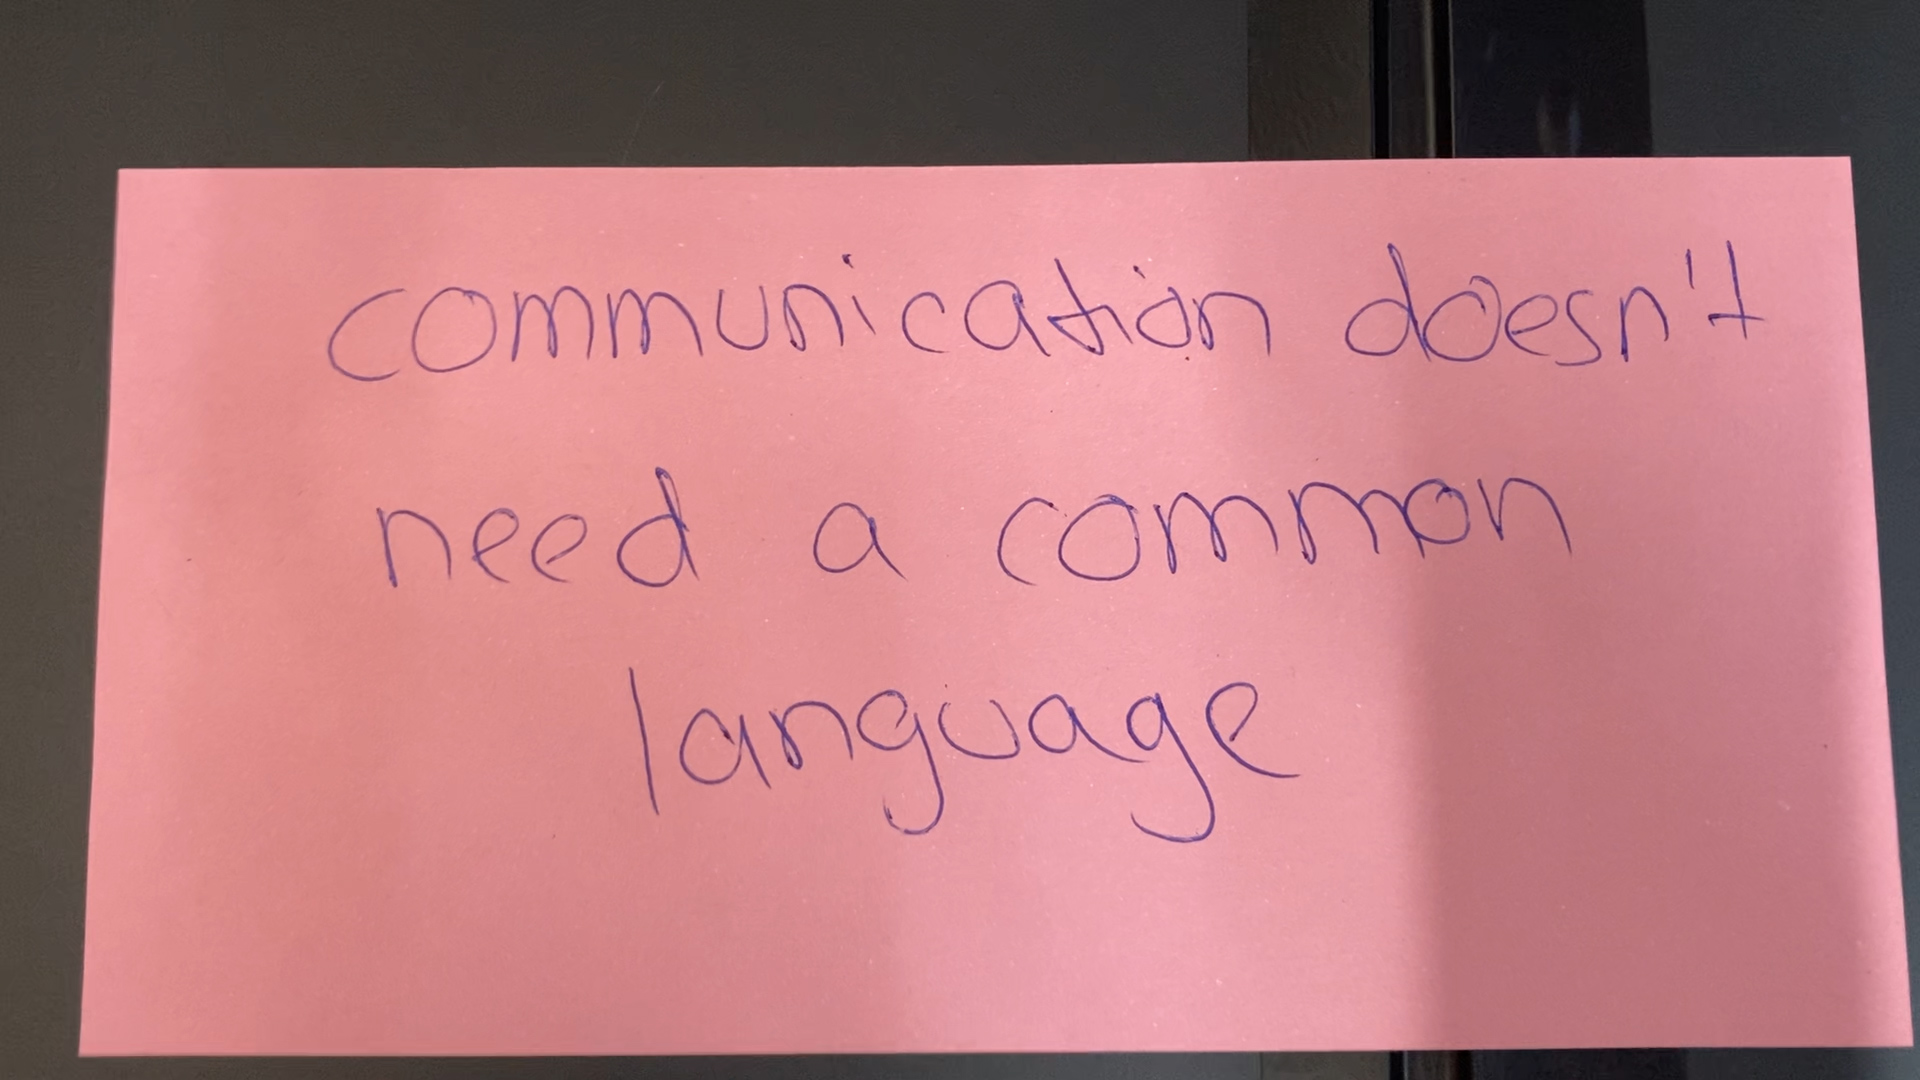 communication doesn't
need a common
language